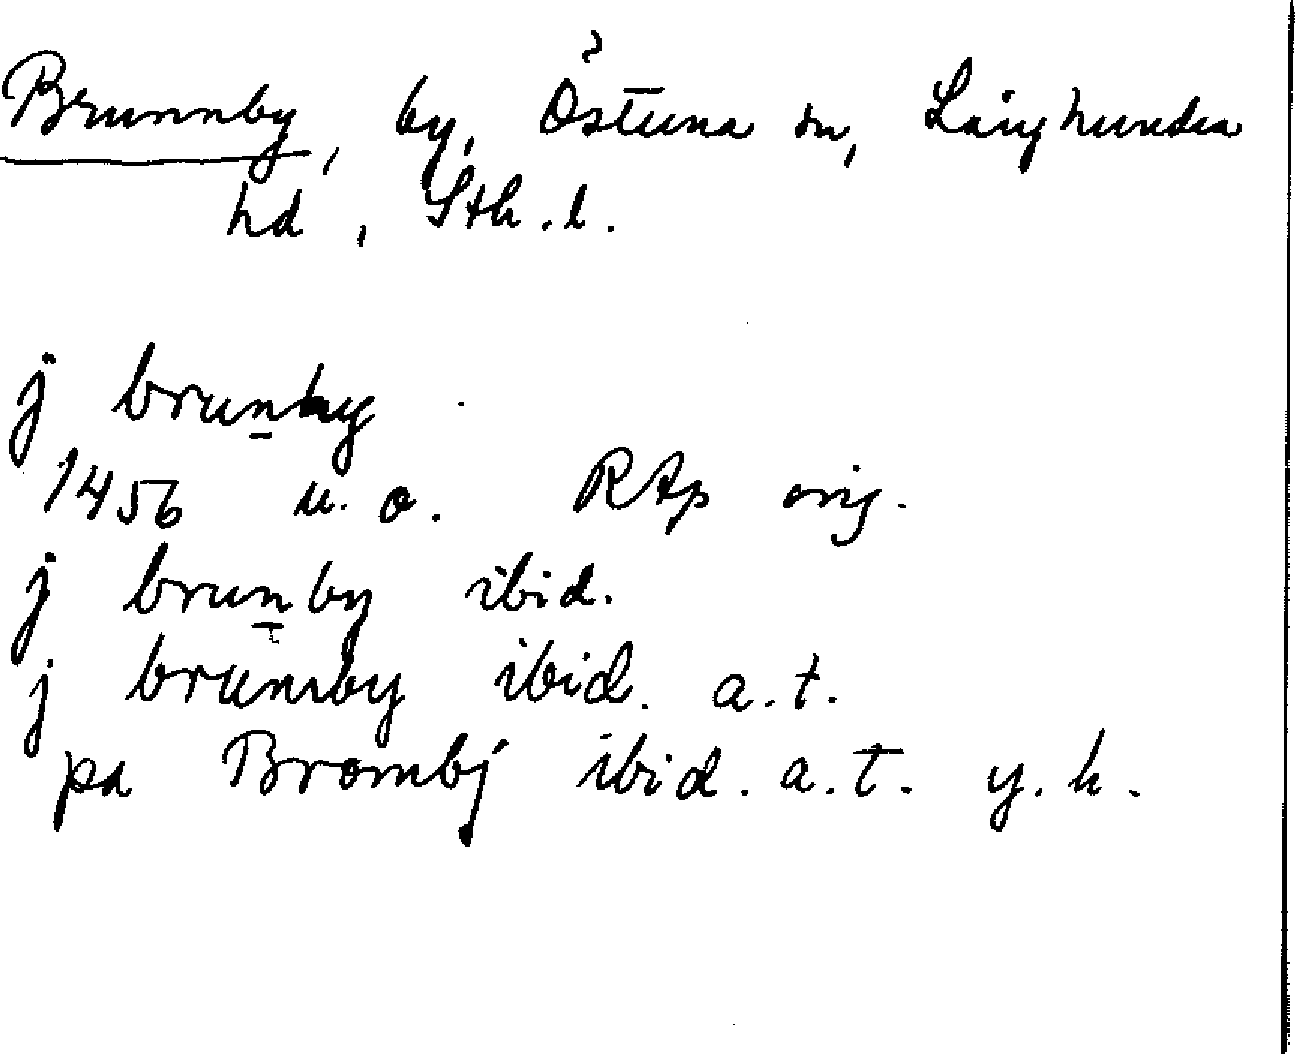 Brunnby, by, Östuna sn, Långhundra
hd, Sth. l.
j brunby
1456 u. o. RAp orig.
j brunby ibid.
j brumby ibid. a. t.
pa Brombÿ ibid. a. t. y. h.